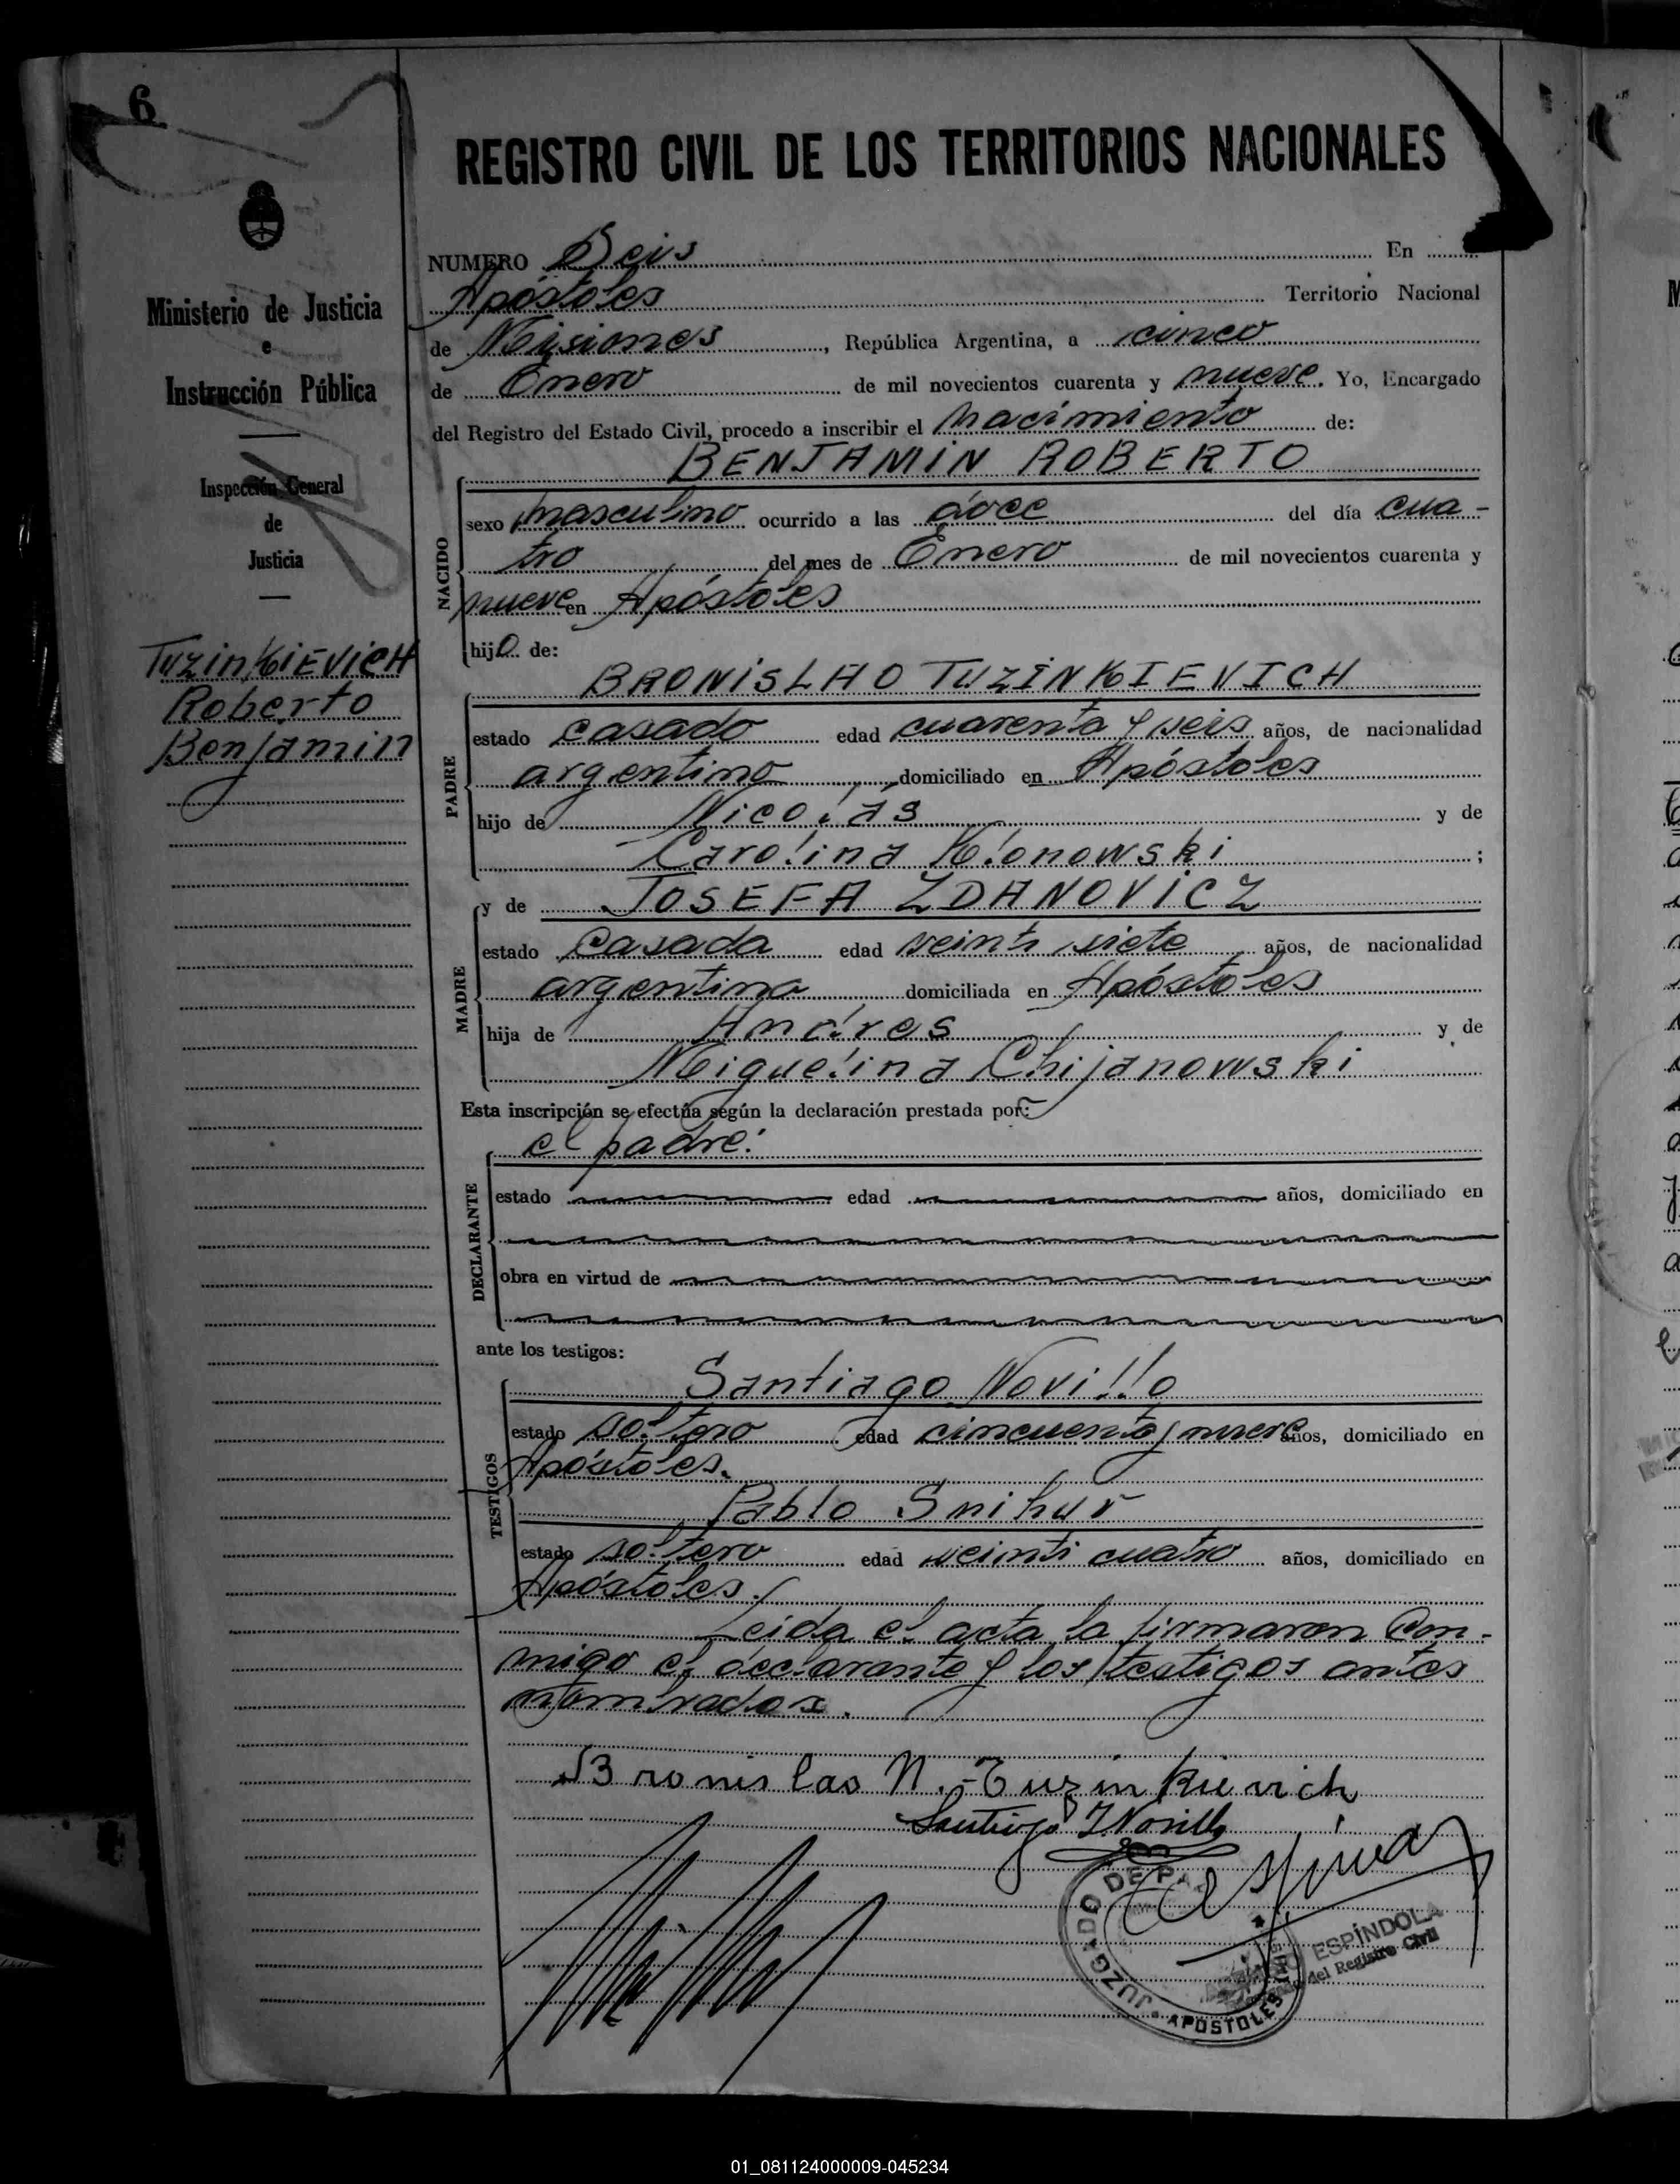 6
REGISTRO CIVIL DE LOS TERRITORIOS NACIONALES
Ministerio de Justicia
e
Instrucción Pública
Inspección General
de
Justicia
TuzinKiEVicH
Roberto
Benjamin
NUMERO Seis En
Apóstoles Territorio Nacional
de Misiones, República Argentina, a cinco
de Enero de mil novecientos cuarenta y nueve. Yo, Encargado
del Registro del Estado Civil, procedo a inscribir el nacimiento de:
BENJAMIN ROBERTO
NACIDO
sexo masculino ocurrido a las doce del día cua-
tro del mes de Enero de mil novecientos cuarenta y
nueve en Apóstoles
hijo de:
BRONISLAO TUZINKIEVICH
PADRE
estado casado edad cuarenta y seis años, de nacionalidad
argentino domiciliado en Apóstoles
hijo de Nicolás y de
Carolina Klonowski;
y de JOSEFA ZDANOVICZ
MADRE
estado casada edad veinti siete años, de nacionalidad
argentina domiciliada en Apóstoles
hija de Andres y de
Miguelina Chijanowski
Esta inscripción se efectúa según la declaración prestada por:
el padre:
DECLARANTE
estado edad años, domiciliado en
obra en virtud de
ante los testigos:
Santiago Novillo
TESTIGOS
estado soltero edad cincuenta y nueve años, domiciliado en
Apóstoles.
Pablo Snihur
estado soltero edad veinti cuatro años, domiciliado en
Apóstoles.
Leida el acta la firmaron con-
migo el declarante y los testigos antes
nombrados.
Bronislao N. Tuzinkievich
Santiago Novillo
JUZGADO DE PAZ
APOSTOLES
ESPÍNDOLA
del Registro Civil
01_081124000009-045234